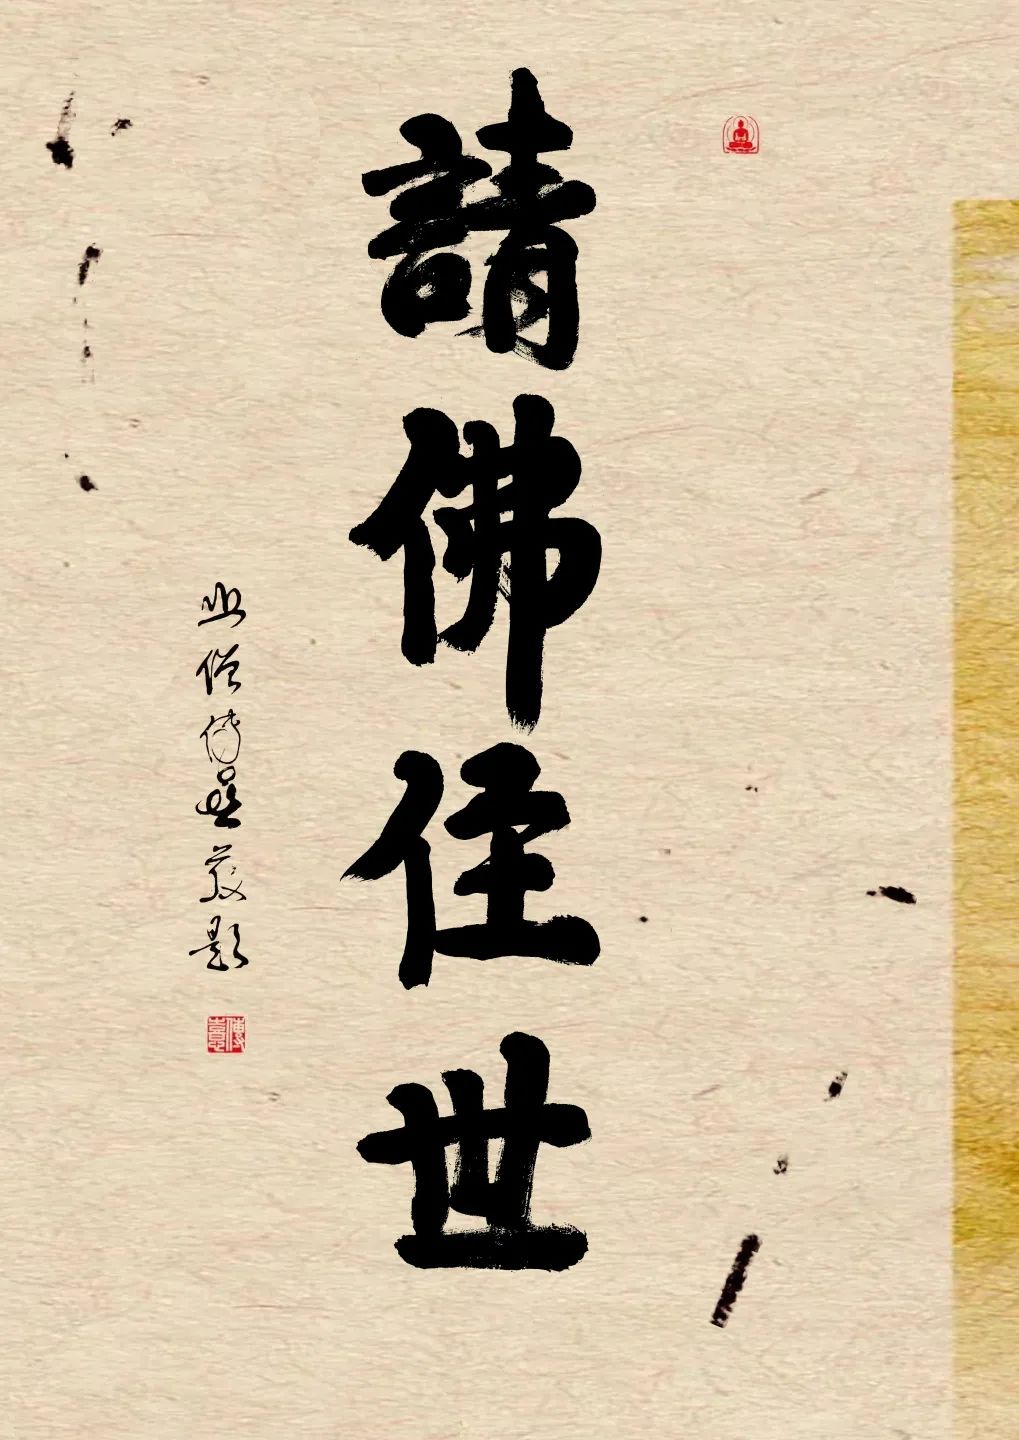 請佛住世
山僧傳喜敬題